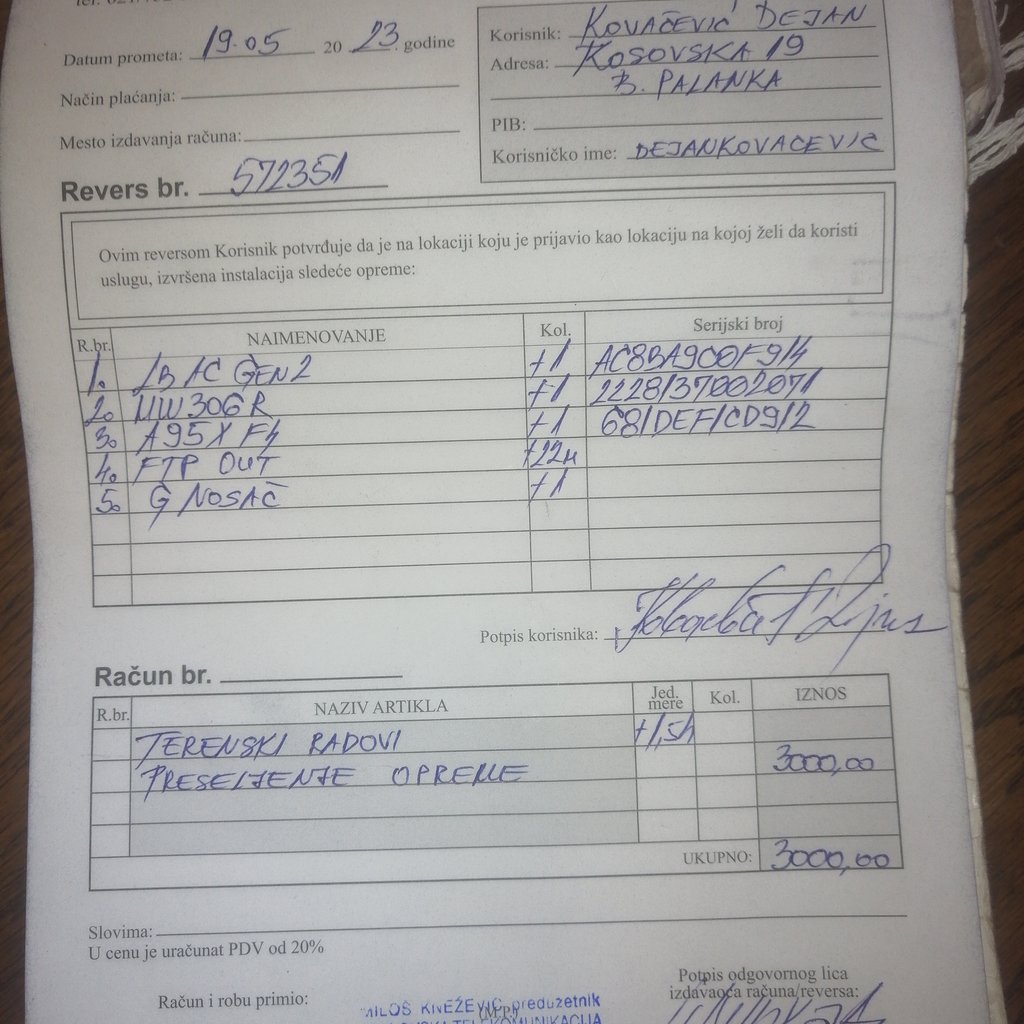 Datum prometa: 19.05 20 23. godine
Način plaćanja:
Mesto izdavanja računa:
Korisnik: KOVAČEVIĆ DEJAN
Adresa: KOSOVSKA 19
B. PALANKA
PIB:
Korisničko ime: DEJANKOVACEVIC
Revers br. 572351
Ovim reversom Korisnik potvrđuje da je na lokaciji koju je prijavio kao lokaciju na kojoj želi da koristi
uslugu, izvršena instalacija sledeće opreme:
R.br. NAIMENOVANJE Kol. Serijski broj
1. GEN2 +1 AC8BA9C0F914
2. MW306R +1 2228137002071
3. A95X F4 +1 681DEF1CD912
4. FTP OUT +22м
5. G NOSAČ +1
Potpis korisnika:
Račun br.
R.br. NAZIV ARTIKLA Jed. mere Kol. IZNOS
TERENSKI RADOVI +1,5h
PRESELJENJE OPREME 3000,00
UKUPNO: 3000,00
Slovima:
U cenu je uračunat PDV od 20%
Račun i robu primio:
MILOŠ KNEŽEVIĆ preduzetnik
(M.P.)
TELEKOMUNIKACIJA
Potpis odgovornog lica
izdavaoca računa/reversa: